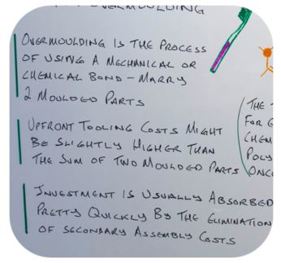 OVERMOULDING
OVERMOULDING IS THE PROCESS
OF USING A MECHANICAL OR
CHEMICAL BOND - MARRY
2 MOULDED PARTS
UPFRONT TOOLING COSTS MIGHT
BE SLIGHTLY HIGHER THAN
THE SUM OF TWO MOULDED PARTS
INVESTMENT IS USUALLY ABSORBED
PRETTY QUICKLY BY THE ELIMINATION
OF SECONDARY ASSEMBLY COSTS
THE
FOR
CHEM
POLY
ONCE